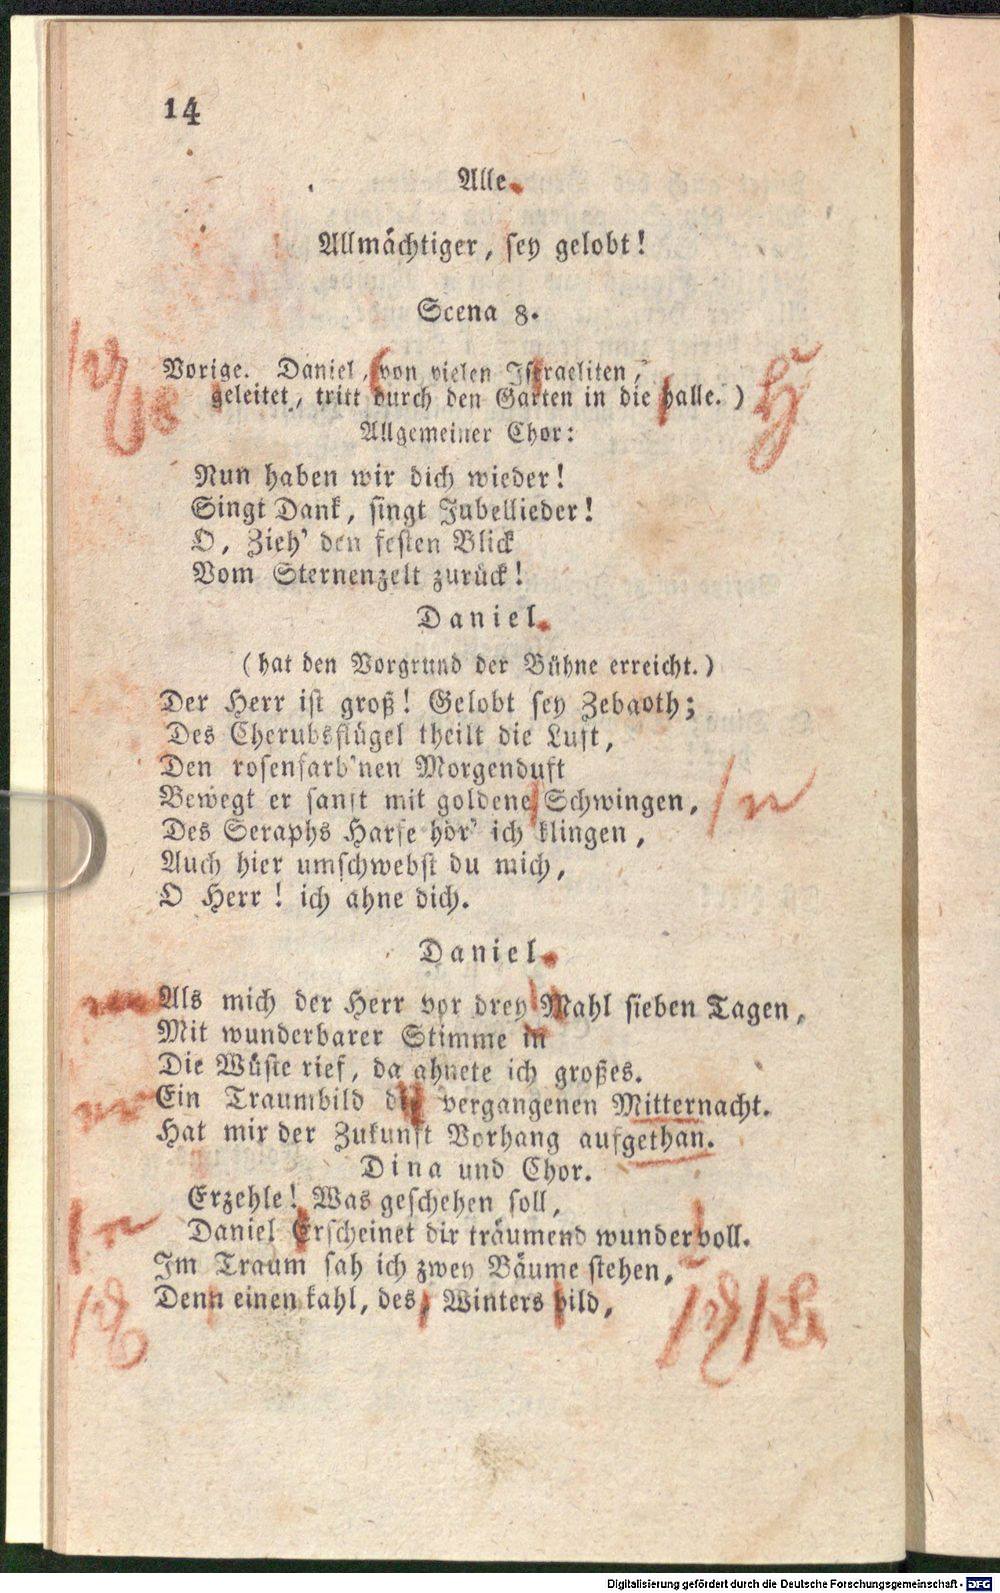 14
Alle.
Allmächtiger, sey gelobt!
Scena 8.
Vorige. Daniel, von vielen Isrraeliten,
geleitet, tritt durch den Garten in die halle.)
Allgemeiner Chor:
Nun haben wir dich wieder!
Singt Dank, singt Jubellieder!
O, Zieh' den festen Blick
Vom Sternenzelt zurück!
Daniel.
(hat den Vorgrund der Bühne erreicht.)
Der Herr ist groß! Gelobt sey Zebaoth;
Des Cherubsflügel theilt die Luft,
Den rosenfarb'nen Morgenduft
Bewegt er sanft mit goldene Schwingen,
n
Des Seraphs Harfe hör' ich klingen,
Auch hier umschwebst du mich,
O Herr! ich ahne dich.
Daniel.
Als mich der Herr vor drey Mahl sieben Tagen,
Mit wunderbarer Stimme in
Die Wüste rief, da ahnete ich großes.
Ein Traumbild vergangenen Mitternacht.
Hat mir der Zukunft Vorhang aufgethan.
Dina und Chor.
Erzehle! Was geschehen soll,
Daniel Erscheinet dir träumend wundervoll.
Im Traum sah ich zwey Bäume stehen,
Denn einen kahl, des, Winters bild,
Digitalisierung gefördert durch die Deutsche Forschungsgemeinschaft - DFG